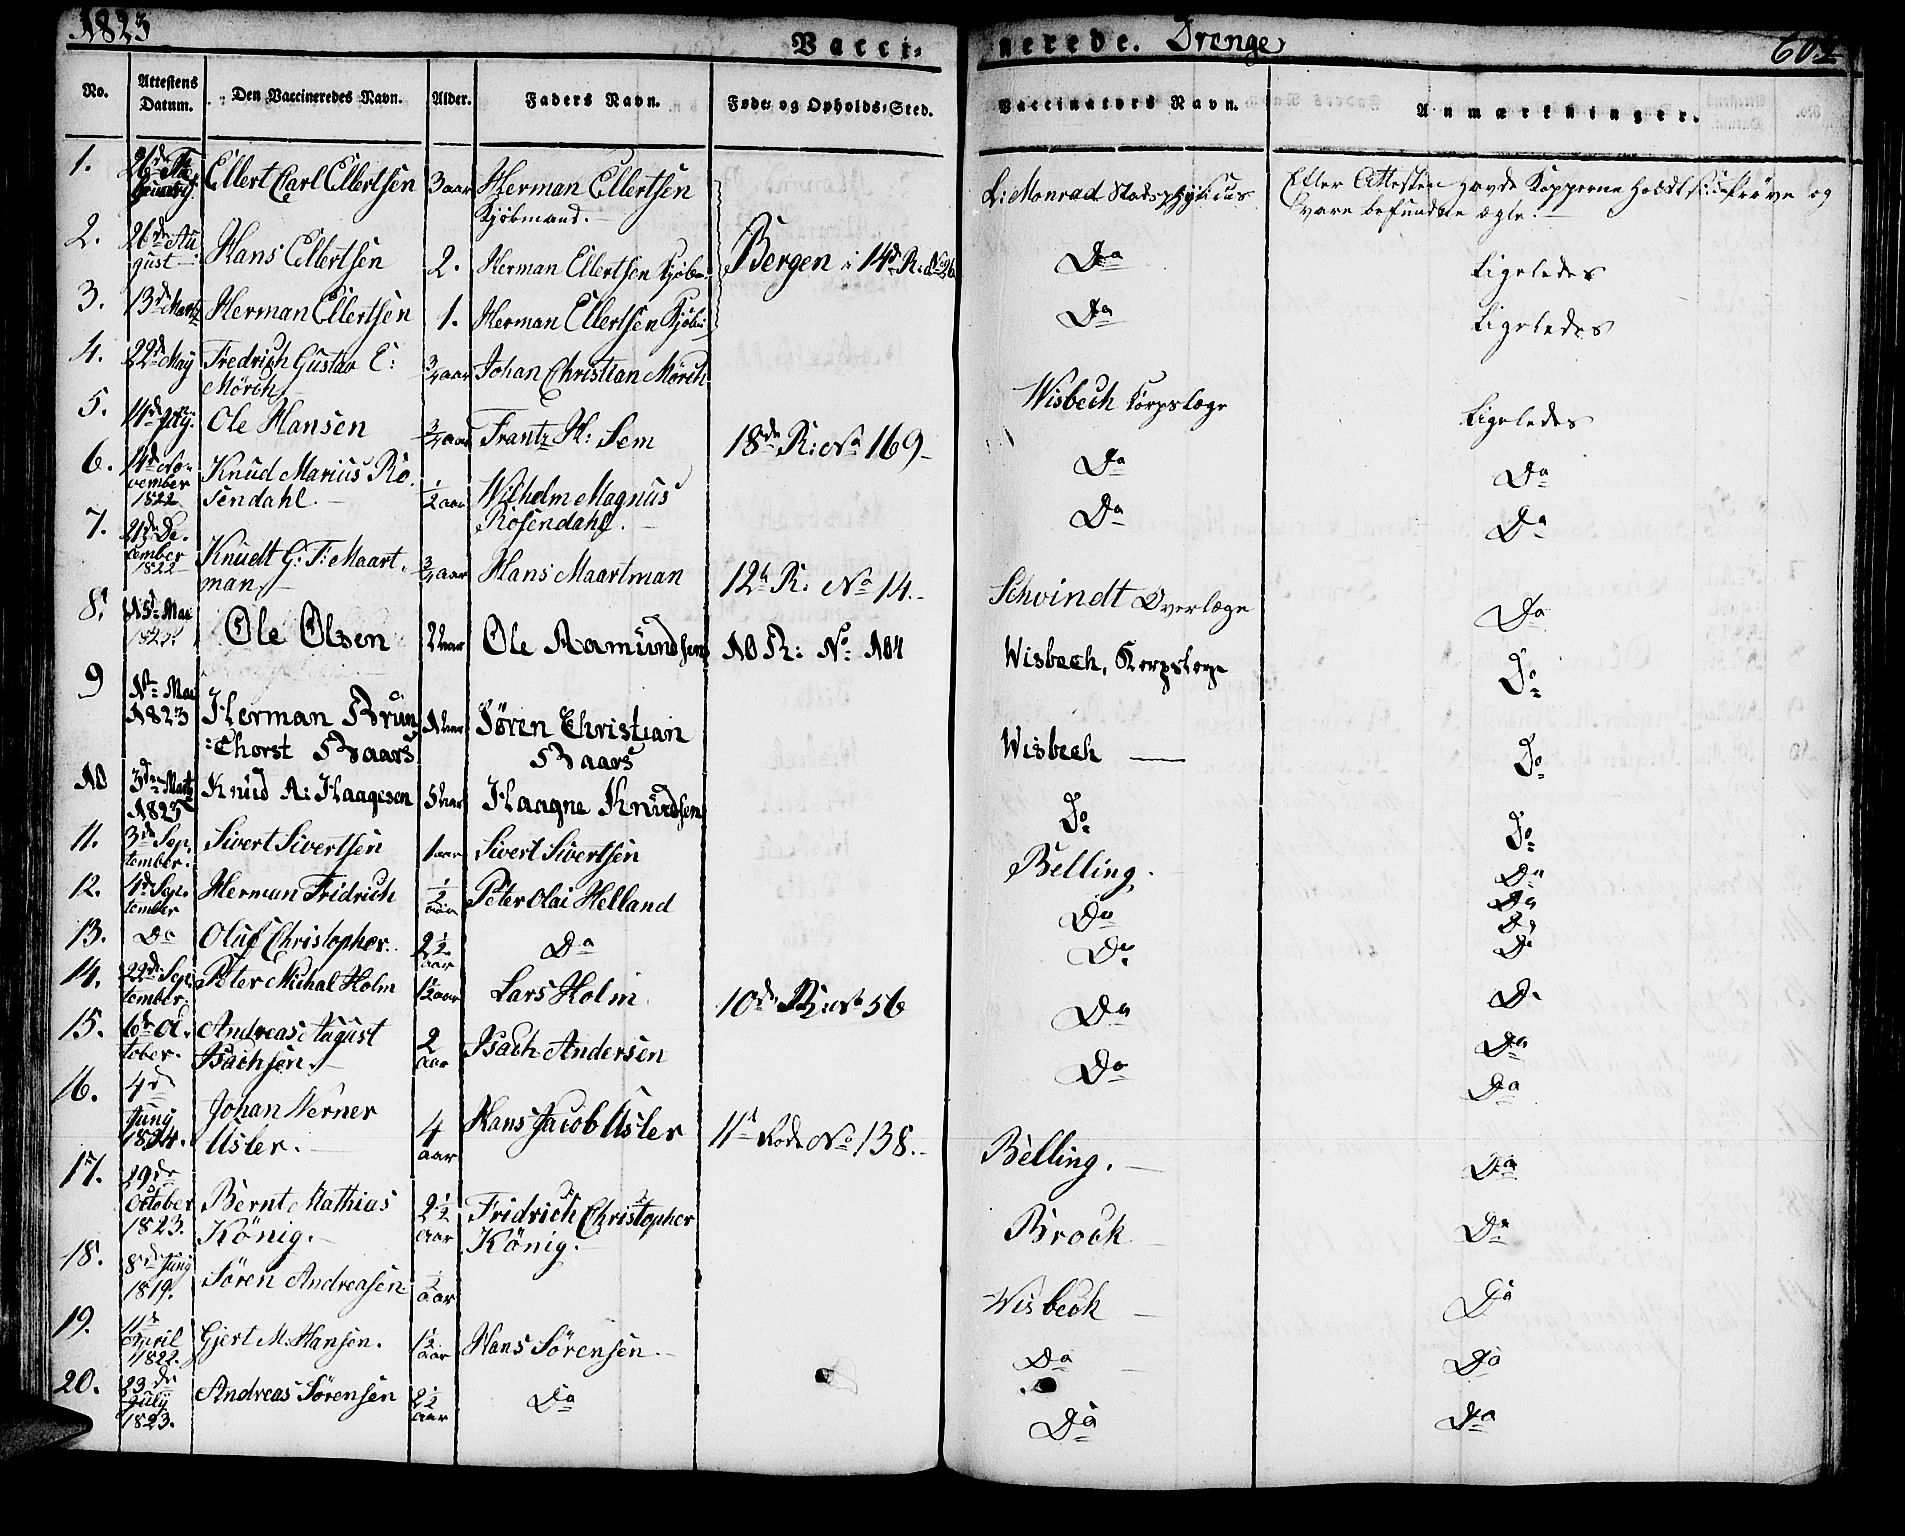 1823
Vacci-
nerede. Drenge
No.
Attestens Datum.
Den Vaccineredes Navn.
Alder.
Faders Navn.
Føde- og Opholds-Sted.
Vaccinators Navn.
Anmærkninger.
1. 26de Ellert Carl Ellertsen 3 aar Herman Ellertsen L: Monrad Stadsphysicus Efter Attesten havde Kopperne holdt sin Prøve og
Kjöbmand. vare befundne ægte.
2. 26de Au
gust Hans Ellertsen 2. Herman Ellertsen Kjöbm: Bergen i 14de R: Do Ligeledes
3. 13de Martz Herman Ellertsen 1. Herman Ellertsen Kjöbm: Do Ligeledes
4. 22de May Fredrich Gustav C: 3/4 aar Johan Christian Mörch Wisbech Corpslæge Ligeledes
Mörch
5. 14de Ole Hansen 3/4 aar Frantz H: Sem 18de R: No 169 Do Do
6. 14de No-
vember
1822 Knud Marius Ro-
sendahl. 1/2 aar Wilhelm Magnus
Rosendahl. Do Do
7. 21de De-
cember
1822 Knudt G: F: Maart-
man 3/4 aar Hans Maartman 12te R. No 14. Schvindt Overlæge Do
8. 15de Mai
1823. Ole Olsen 2 aar Ole Aamundsen 10 R: No 104 Wisbech, Korpslæge Do
9 Mai
1823 Herman Brun
Chorst Baars 1 aar Sören Christian
Baars Wisbech Do
10 3de Martz
1823 Knud A: Haagesen 5 aar Haagne Knudsen Do Do
11. 3de Sep-
tember. Sivert Sivertsen 1 aar Sivert Sivertsen Belling. Do
12. 4de Sep-
tember Herman Fridrich 1/2 aar Peter Olai Helland Do Do
13. Do Oluf Christopher. 2 1/2 aar Do Do Do
14. 22de Sep-
tember. Peter Michal Holm 1 1/2 aar Lars Holm 10de R: No 56 Do Do
15. 6de Oc-
tober. Andreas August
Isachsen. 2 aar Isach Andersen Do Do
16. 4de
Juny
1824. Johan Werner
Usler. 4 aar Hans Jacob Usler 11te Rode No 138. Belling. Do
17. 29de
October
1823. Bernt Mathias
König. 2 1/2 aar Fridrich Christopher
König. Brock Do
18. 8de Juny
1819. Sören Andreasen 1/2 aar Wisbech Do
19. 11te
April
1822. Gjert M. Hansen. 1 1/2 aar Hans Sörensen. Do Do
20. 23de
July
1823. Andreas Sörensen 2 1/2 aar Do Do Do